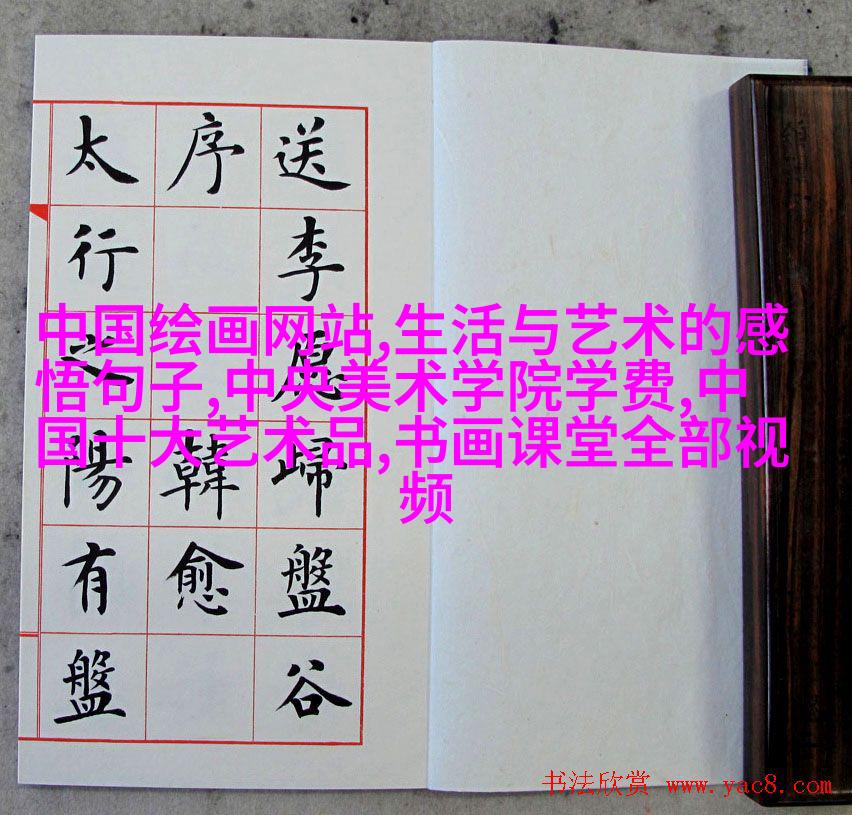 送李愿歸盤谷
序韓愈
太行之陽有盤
中国绘画网站,生活与艺术的感
悟句子,中央美术学院学费,中
国十大艺术品,书画课堂全部视
频
书法欣赏 www.yac8.com